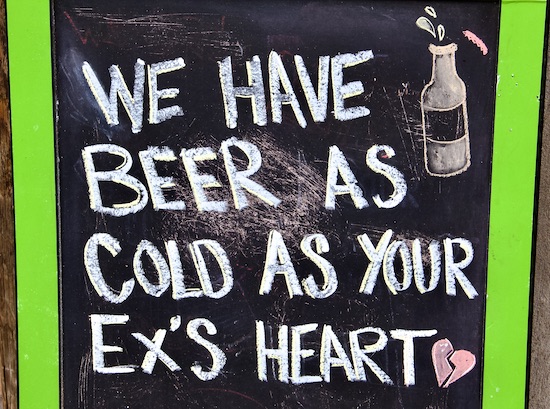 WE HAVE
BEER AS
COLD AS YOUR
EX'S HEART